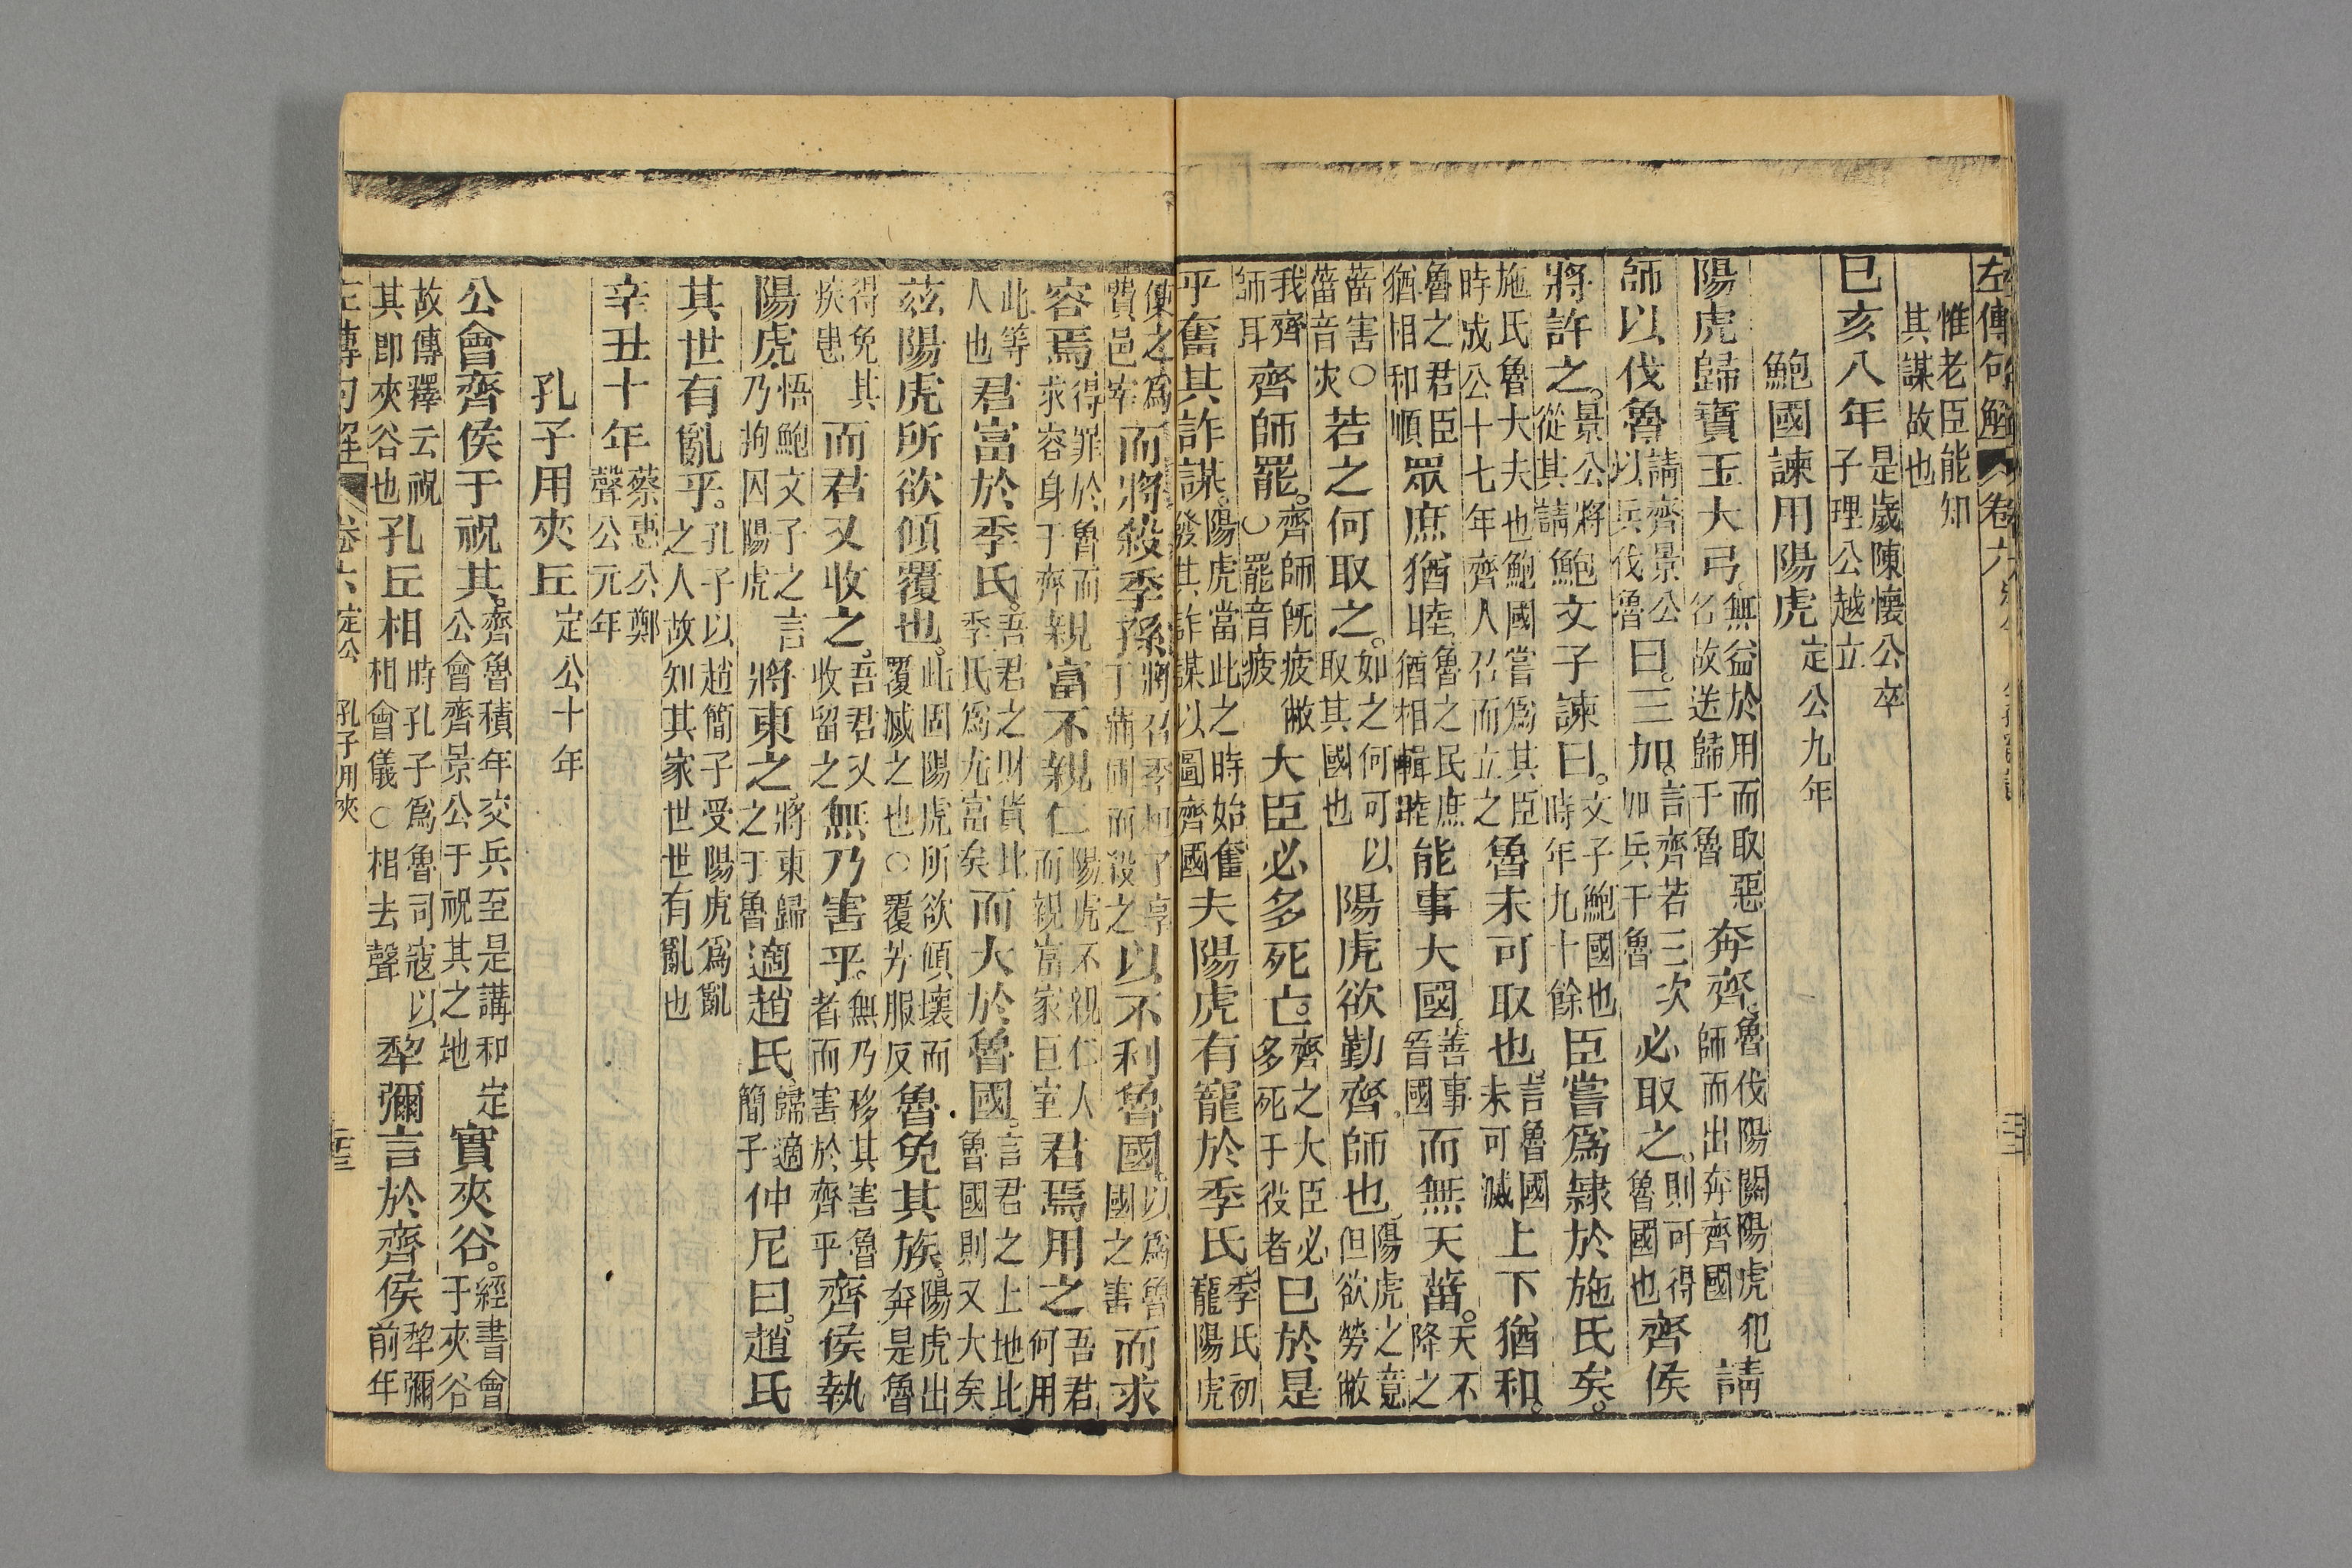 左傳句解 卷六
惟老臣能知其謀故也
己亥八年是歲陳懷公卒子理公越立
鮑國諫用陽虎定公九年
陽虎歸寶玉大弓無益於用而取惡名故送歸于魯奔齊魯伐陽關陽虎犯師而出奔齊國請
師以伐魯請齊景公以兵伐魯曰三加言齊若三次加兵于魯必取之則可得魯國也齊侯
將許之景公將從其請鮑文子諫曰文子鮑國也時年九十餘臣嘗爲隸於施氏矣
施氏魯大夫也鮑國嘗爲其臣時成公十七年齊人召而立之魯未可取也言魯國未可滅上下猶和
魯之君臣猶相和順眾庶猶睦魯之民庶猶相輯睦能事大國善事晉國而無天菑天不降之
菑害○菑音灾若之何取之如之何可以取其國也陽虎欲勤齊師也陽虎之意但欲勞敝
我齊師耳齊師罷齊師既疲敝○罷音疲大臣必多死亡齊之大臣必多死于役者已於是
乎奮其詐謀陽虎當此之時始奮發其詐謀以圖齊國夫陽虎有寵於季氏季氏初寵陽虎
使之爲費邑宰而將殺季孫將召季桓子享于蒲圃而殺之以不利魯國以爲魯國之害而求
容焉得罪於魯而求容身于齊親富不親仁陽虎不親仁人而親富家巨室君焉用之吾君何用
此等人也君富於季氏吾君之財貨比季氏爲尤富矣而大於魯國言君之土地比魯國則又大矣
茲陽虎所欲傾覆也此固陽虎所欲傾壞而覆滅之也○覆芳服反魯免其族陽虎出奔是魯
得免其疾患而君又收之吾君又收留之無乃害乎無乃移其害魯者而害於齊乎齊侯執
陽虎悟鮑文子之言乃拘囚陽虎將東之將東歸之于魯適趙氏歸適簡子仲尼曰趙氏
其世有亂乎孔子以趙簡子受陽虎爲亂之人故知其家世世有亂也
辛丑十年蔡惠公鄭聲公元年
孔子用夾丘定公十年
公會齊侯于祝其齊魯積年交兵至是講和定公會齊景公于祝其之地實夾谷經書會于夾谷
故傳釋云祝其即夾谷也孔丘相時孔子爲魯司寇以相會儀○相去聲犂彌言於齊侯犂彌前年
左傳句解 卷六 定公 孔子用夾